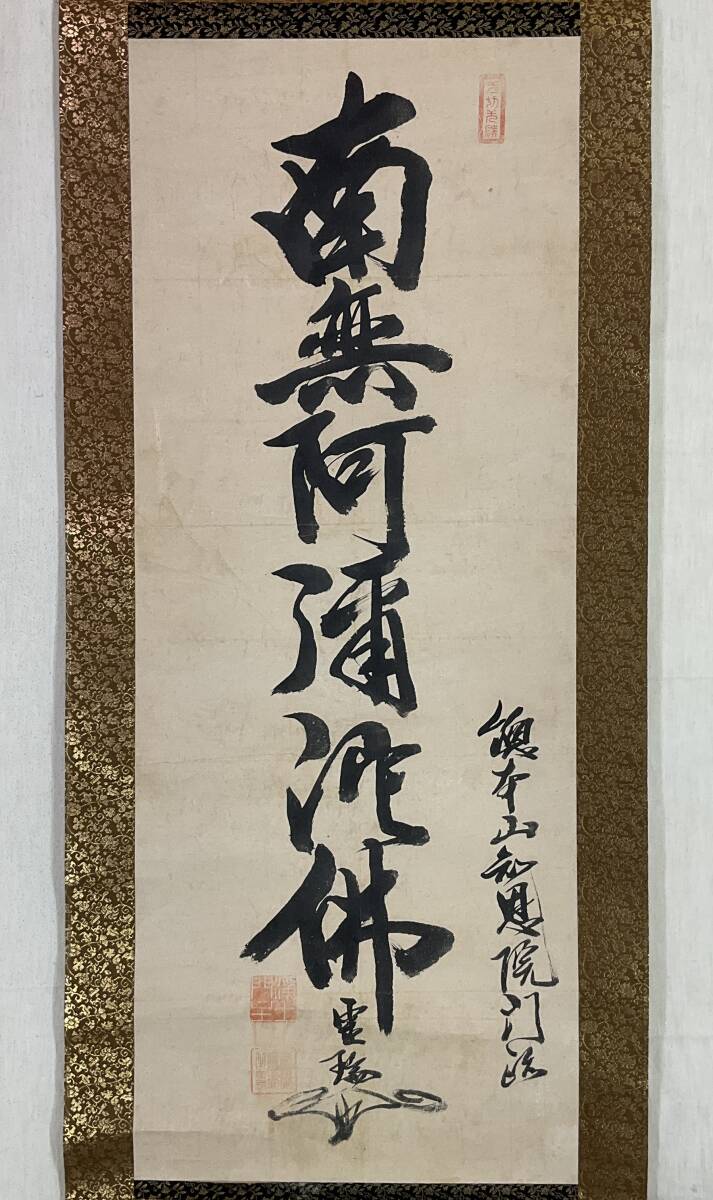 總本山知恩院門跡
南無阿彌陀佛
霊瑞